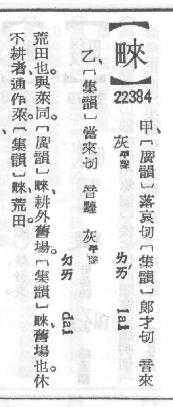 【䠭】
22384
甲、〔廣韻〕落哀切〔集韻〕郎才切 音來
灰平聲 ㄌㄞˊ lai
乙、〔集韻〕當來切 音䵆 灰平聲
ㄉㄞ dai
荒田也。與萊同。〔廣韻〕睞、耕外舊場。〔集韻〕睞、舊場也。休
不耕者、通作萊。〔集韻〕睞、荒田。